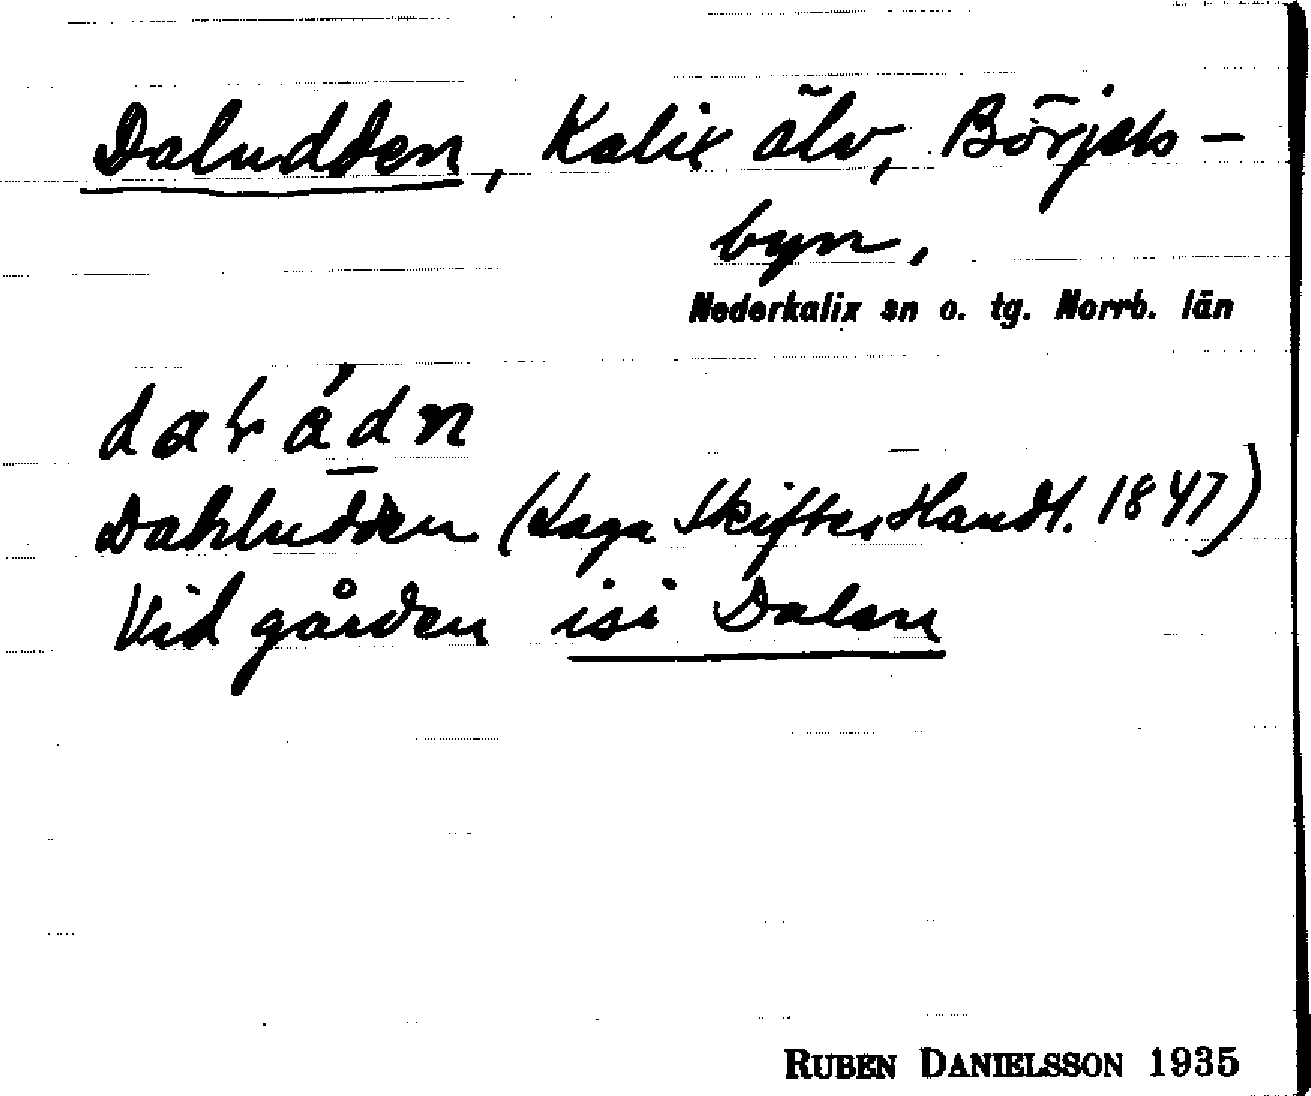 Daludden, Kalix älv, Börjels-
byn.
Nederkalix sn o. tg. Norrb. län
Dahludden (Laga Skiftes Handl. 1847)
Vid gården isi Dalen
RUBEN DANIELSSON 1935